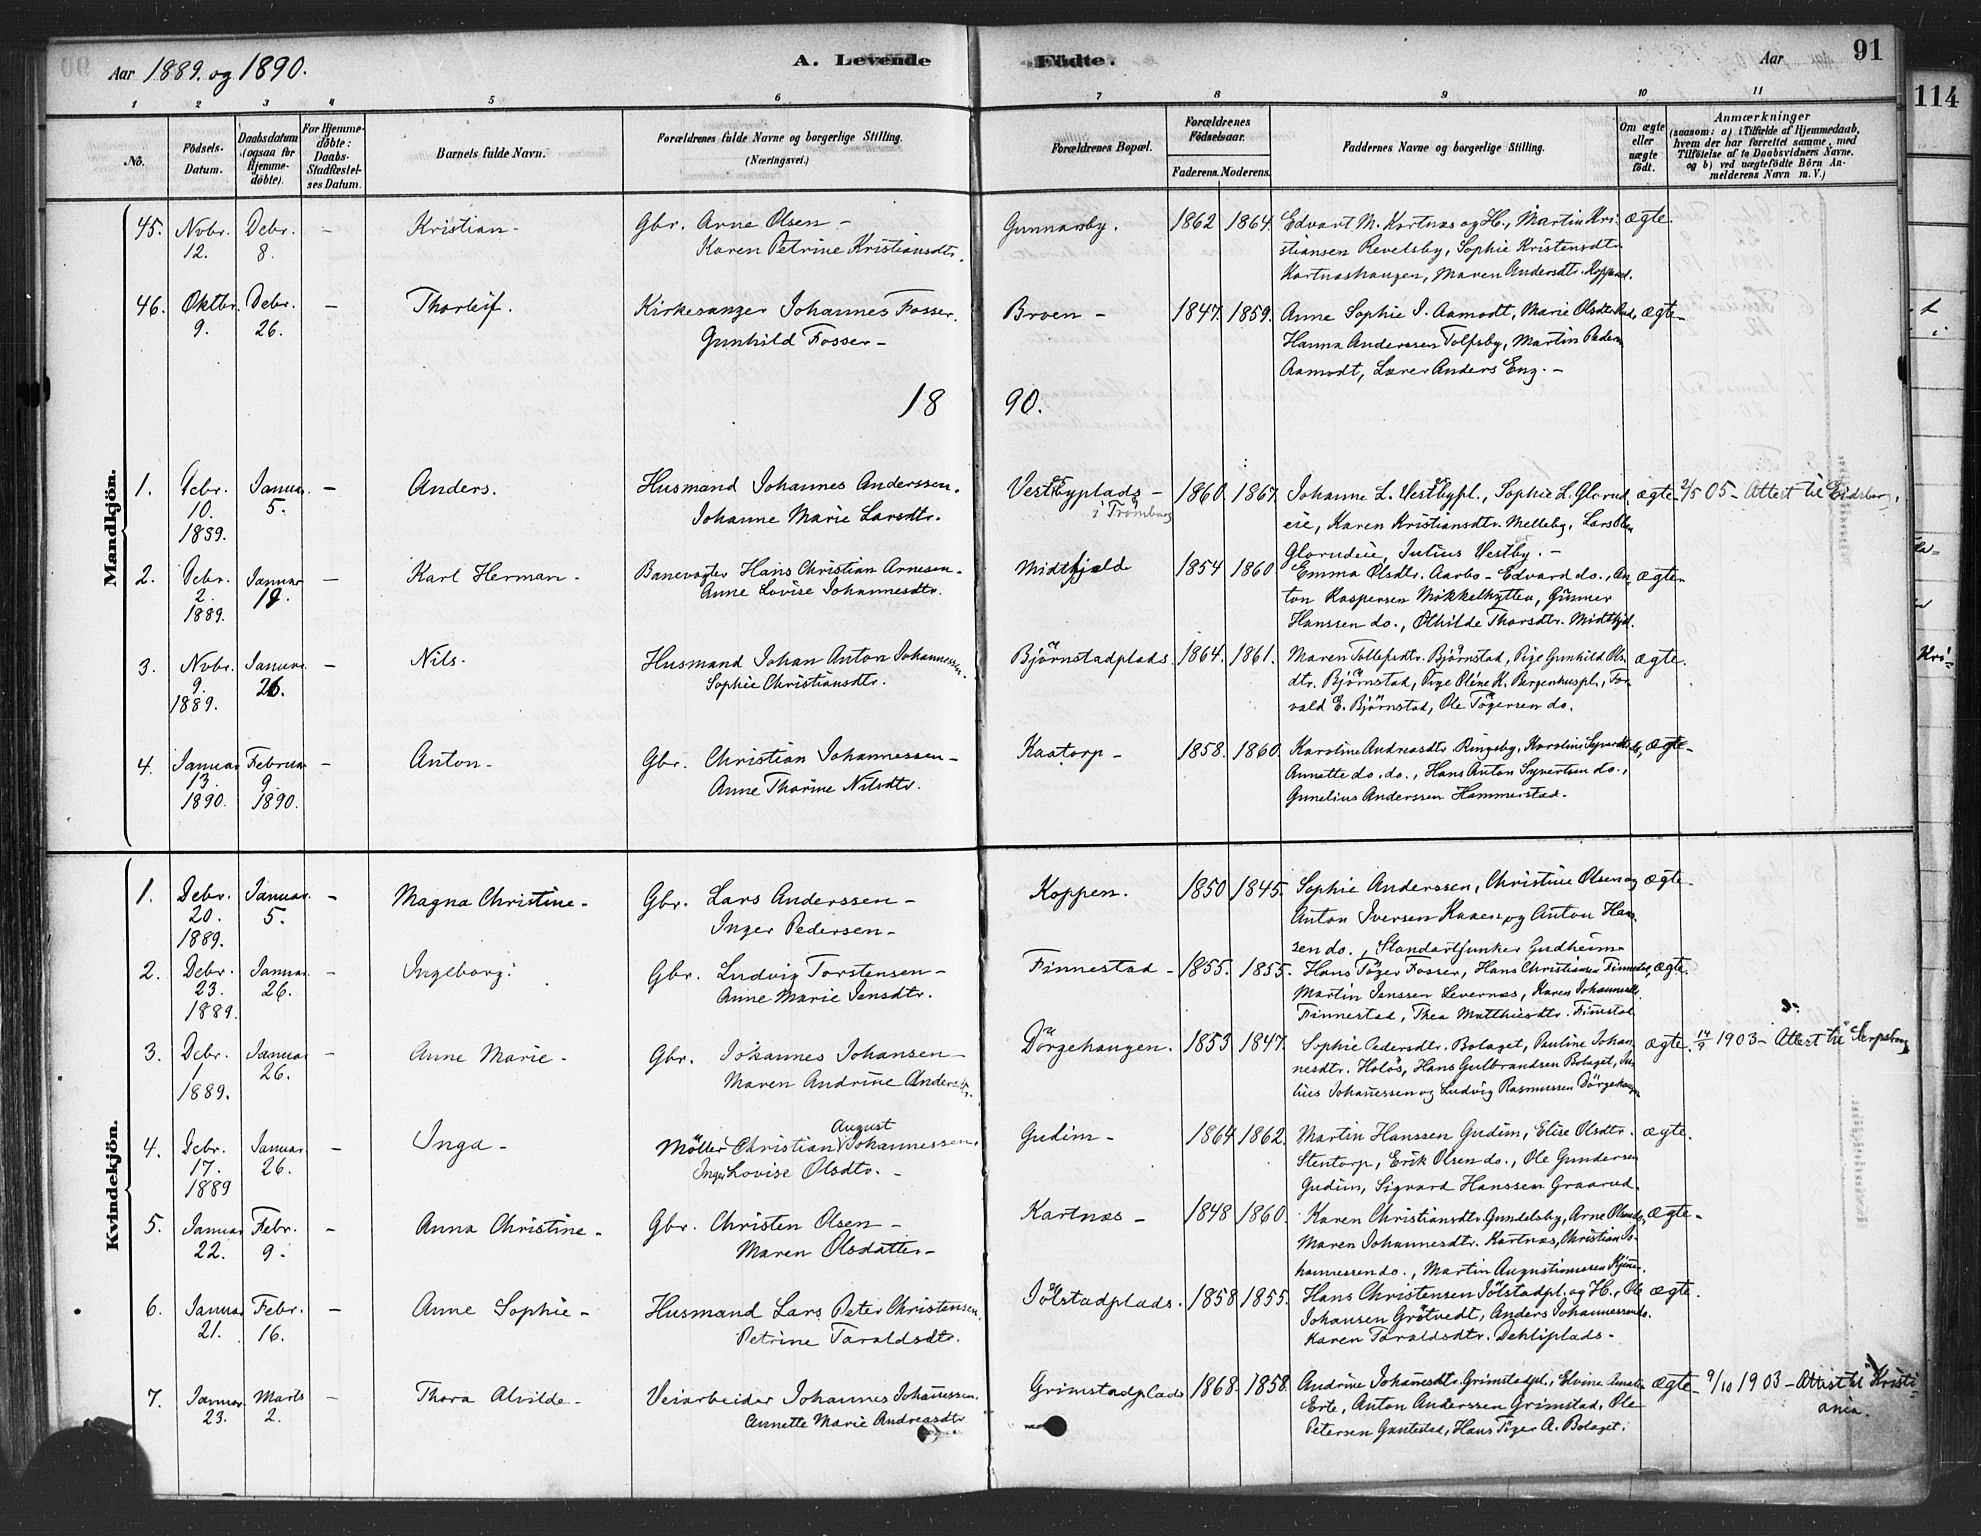 Aar 1889. og 1890.
A. Levende Födte.
Aar
91
114
1 2 3 4 5 6 7 8 9 10 11
No.
Födsels-Datum.
Daabsdatum (ogsaa for Hjemme-döbte).
For Hjemme-döbte: Daabs-Stadfæstel-ses Datum.
Barnets fulde Navn.
Forældrenes fulde Navne og borgerlige Stilling.
(Næringsvei.)
Forældrenes Bopæl.
Forældrenes Födselsaar.
Faderens. Moderens.
Faddernes Navne og borgerlige Stilling.
Om ægte eller uægte födt.
Anmærkninger
(saasom: a) i Tilfælde af Hjemmedaab, hvem der har forrettet samme, med Tilföielse af to Daabsvidners Navne. og b) ved uægtefödte Börn Anmelderens Navn m. V.)
Mandkjön.
45. Novbr. 12. Debr. 8. - Kristian -
Gbr. Arne Olsen -
Karen Petrine Kristiansdtr.
Gunnarsby. 1862 1864.
Edvart M. Kartnæs og H., Martin Kri-
stiansen Revelsby, Sophie Kristensdtr.
Kartnæshaugen, Maren Andersdtr. Koppen.
ægte.
46. Oktbr. 9. Debr. 26. - Thorleif.
Kirkesanger Johannes Fosser.
Gunhild Fosser -
Broen - 1847. 1859.
Anne Sophie J. Aamodt, Marie Olsdtr. Rud,
Hanna Anderssen Tolfsby, Martin Peders
Aamodt, Lærer Anders Eng. -
ægte -
1890.
1. Debr. 10. 1889. Januar 5. - Anders.
Husmand Johannes Anderssen.
Johanne Marie Larsdtr.
Vestbyplads - i Trømborg 1860. 1867.
Johanne L. Vestbypl., Sophie L. Glorud
eie, Karen Kristiansdtr. Melleby, Lars Olsen
Glorudeie, Julius Vestby. -
ægte - 2/5 05 - Attest til Eidsberg.
2. Debr. 2. 1889. Januar 19. - Karl Herman -
Banevogter Hans Christian Arnesen -
Anne Lovise Johannesdtr.
Midtfjeld 1854 1860
Emma Olsdtr. Aarbo - Edvard do., An-
ton Kaspersen Mökkelhytten, Gunner
Hanssen do., Othilde Thorsdtr. Midtfjd.
ægte -
3. Novbr. 9. 1889. Januar 26. - Nils.
Husmand Johan Anton Johannessen.
Sophie Christiansdtr.
Björnstadplads 1864. 1861.
Maren Tollefsdtr. Björnstad, Pige Gunhild Ols-
dtr. Björnstad, Pige Oline K. Bergenhuspl., Tor-
vald E. Björnstad, Ole Tögersen do.
ægte.
4. Januar 13. 1890. Februar 9. 1890. - Anton -
Gbr. Christian Johannessen -
Anne Thorine Nilsdtr.
Kaatorp - 1858. 1860.
Karoline Andreasdtr. Ringsby, Karoline Syvertsdtr.,
Annette do. do., Hans Anton Syvertsen do.,
Gunelius Anderssen Hammerstad -
ægte -
Kvindekjön.
1. Debr. 20. 1889. Januar 5. - Magna Christine -
Gbr. Lars Anderssen -
Inger Pedersen -
Koppen. 1850 1845.
Sophie Anderssen, Christine Olsen og
Anton Iversen Kaaen og Anton Han-
sen do., Standartjunker Gudheim
ægte -
2. Debr. 23. 1889. Januar 26. - Ingeborg.
Gbr. Ludvig Torstensen -
Anne Marie Jensdtr.
Finnestad - 1855. 1855.
Hans Töger Fosser, Hans Christiansen Finnestad,
Martin Jenssen Levernæs, Karen Johannesdtr.
Finnestad, Thea Matthisdtr. Finnestad.
ægte.
3. Debr. 1 1889. Januar 26. - Anne Marie -
Gbr. Johannes Johansen -
Maren Andrine Andersdtr.
Dörgehaugen. 1853 1847.
Sophie Pedersdtr. Bolaget, Pauline Johan-
nesdtr. Holös, Hans Gulbrandsen Bolaget, Ju-
lius Johannessen og Ludvig Rasmussen Dörgehaugen
ægte. 14/9 1903 - Attest til Sarpsborg
4. Debr. 17. 1889 Januar 26. - Inga -
Möller Christian August Johannessen.
Inger Lovise Olsdtr. -
Gudim - 1864 1862.
Martin Hanssen Gudim, Elise Olsdtr.
Stentorp, Erik Olsen do., Ole Gundersen
Gudim, Sigvard Hanssen Graarud.
ægte.
5. Januar 22. Febr. 9. - Anna Christine -
Gbr. Christen Olsen -
Maren Olsdatter -
Kartnæs - 1848 1860.
Karen Christiansdtr. Gundelsby, Arne Olsen do,
Maren Johannesdtr. Kartnæs, Christian Jo-
hannessen do., Martin Augustinussen
ægte -
6. Januar 21. Febr. 16. - Anne Sophie -
Husmand Lars Peter Christensen.
Petrine Taraldsdtr.
Jölstadplads. 1858 1855.
Hans Christensen Jölstadpl. og H., Ole
Johansen Grötvedt, Anders Johannessen do.
Karen Taraldsdtr. Dehliplads -
ægte.
7. Januar 23. Marts 2. - Thora Alvilde -
Veiarbeider Johannes Johannessen.
Annette Marie Andreasdtr.
Grimstadplads 1868. 1858.
Andrine Johannesdtr. Grimstadpl., Elvine Amalie
Erte, Anton Anderssen Grimstad, Ole
Petersen Gautestad, Hans Töger A. Bolaget.
ægte - 9/10 1903 - Attest til Kristi-
ania.